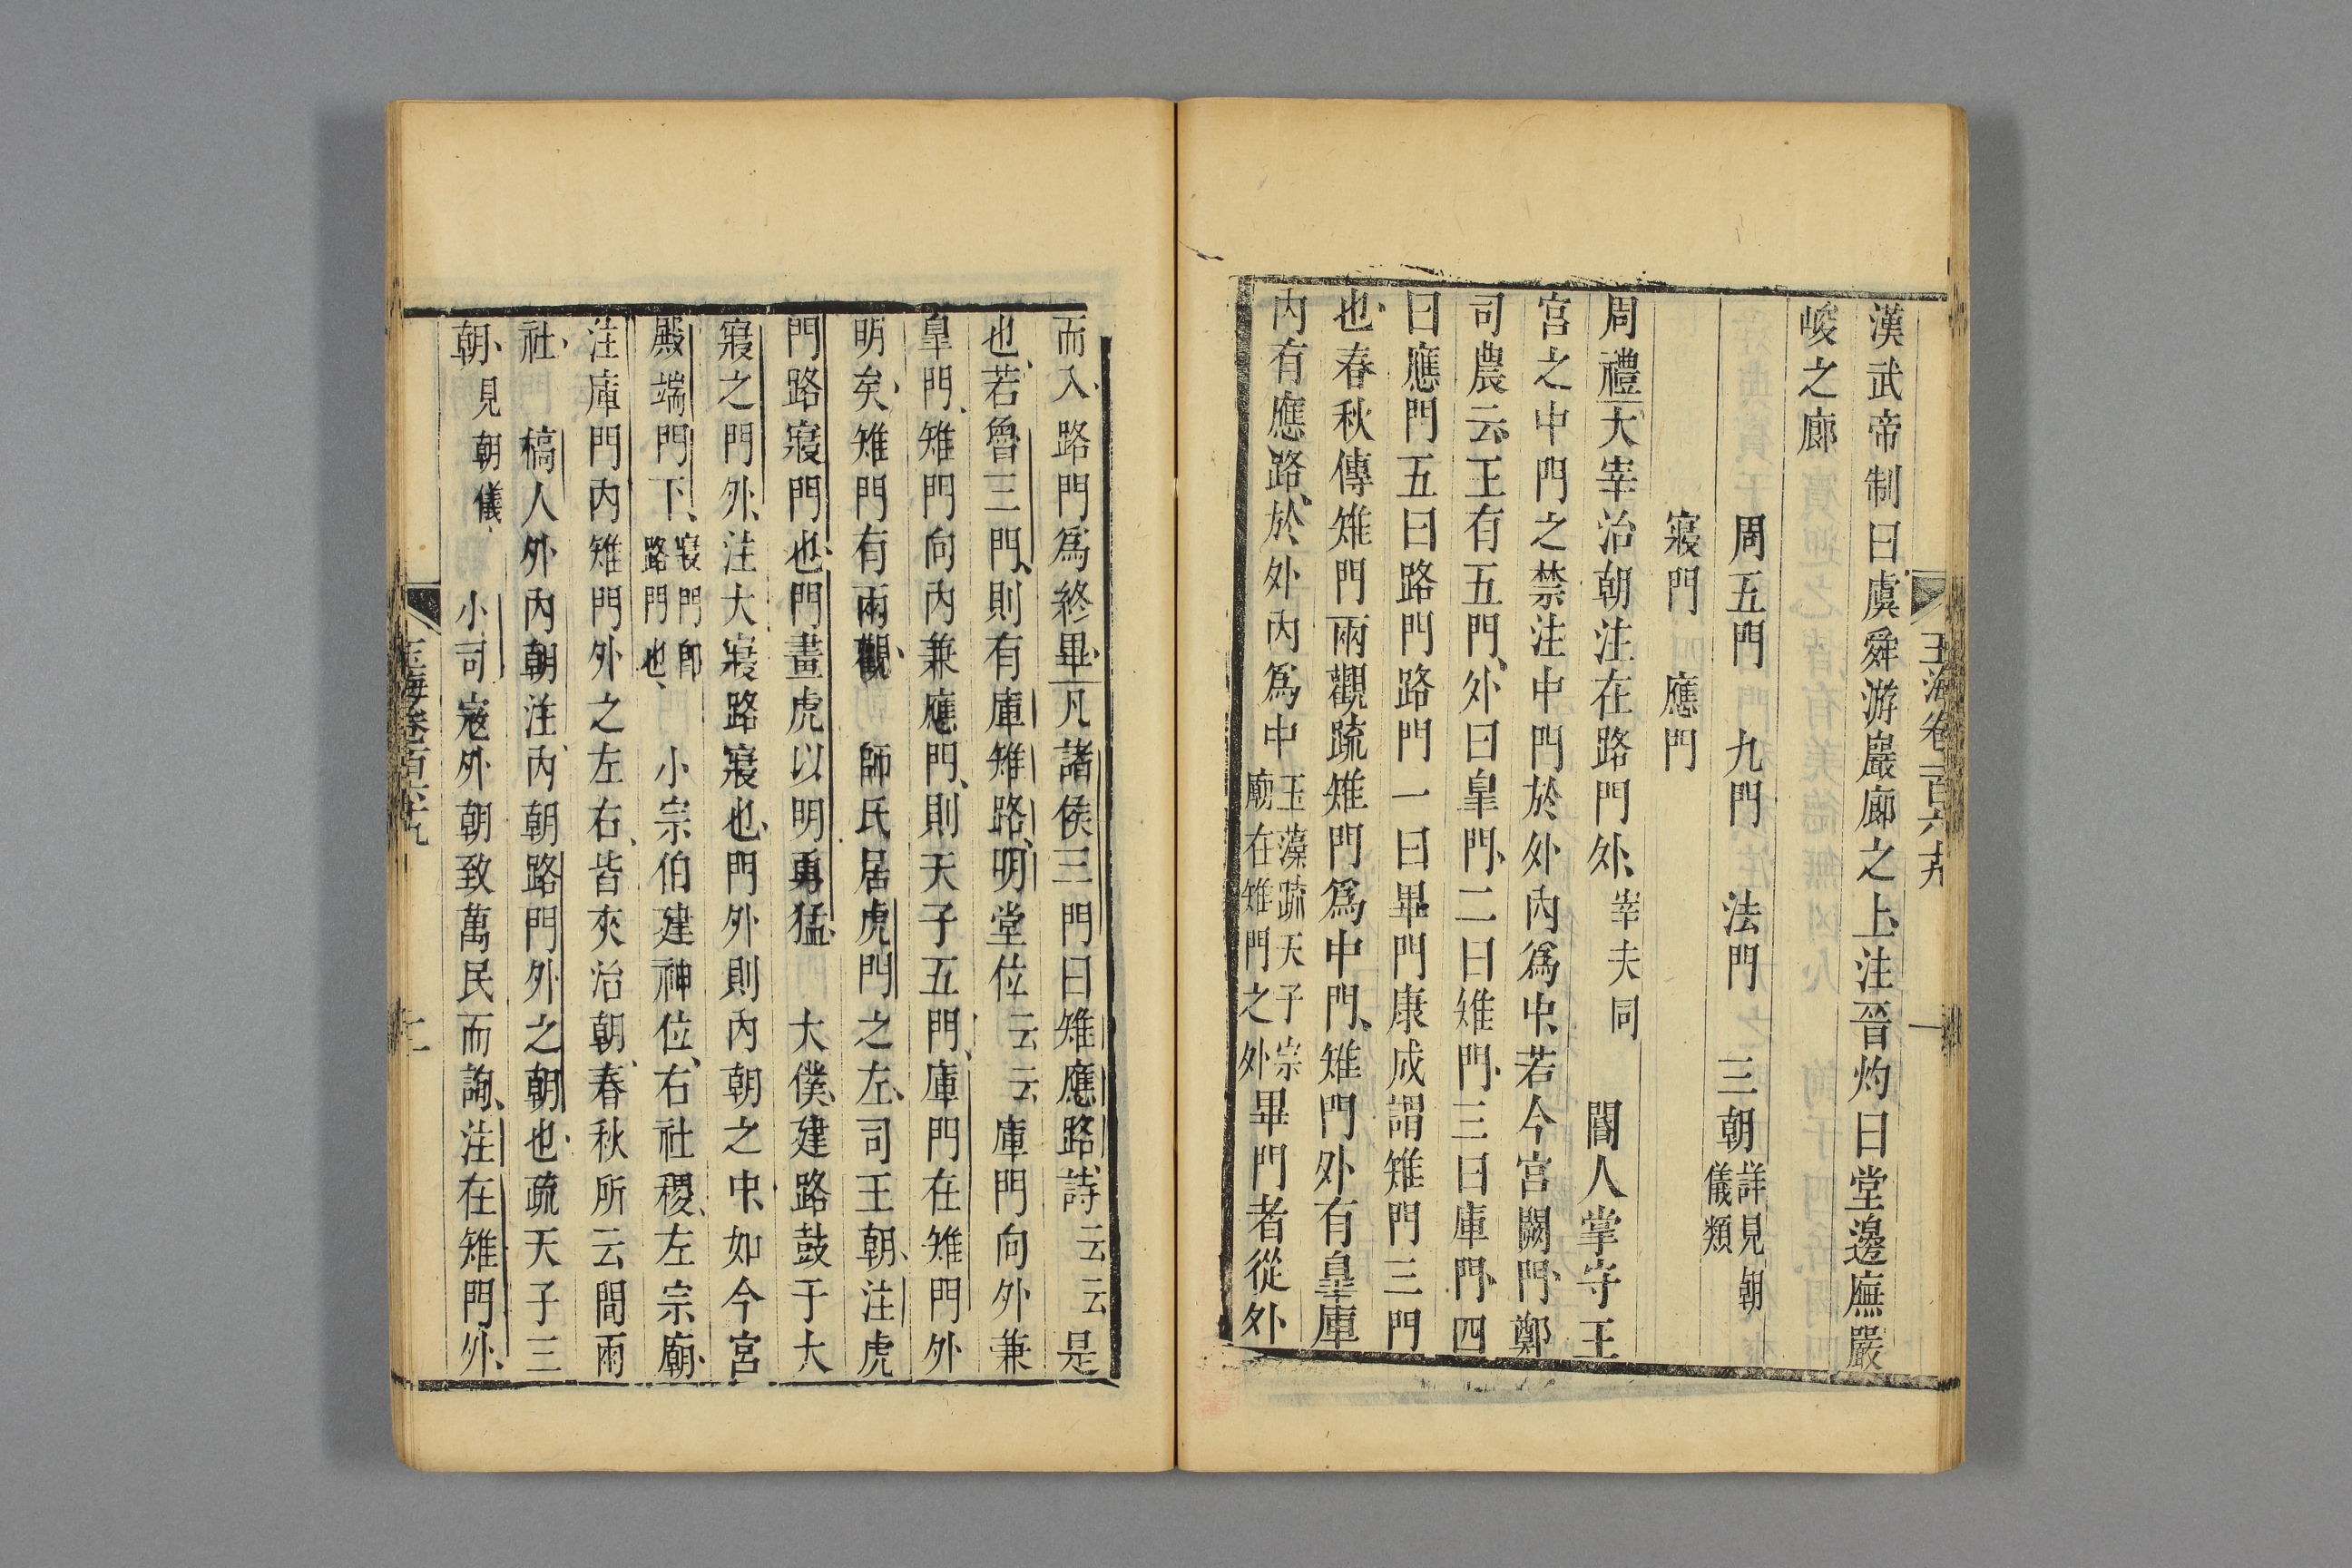 玉海卷一百六十九
一
漢武帝制曰虞舜游巖廊之上注晉灼曰堂邊廡嚴
峻之廊
周五門　九門　法門　三朝詳見朝儀類
寢門　應門
周禮大宰治朝注在路門外宰夫同　閽人掌守王
宮之中門之禁注中門於外內爲中若今宮闕門鄭
司農云王有五門外曰皐門二曰雉門三曰庫門四
曰應門五曰路門路門一曰畢門康成謂雉門三門
也春秋傳雉門兩觀疏雉門爲中門雉門外有皐庫
內有應路於外內爲中玉藻疏天子宗廟在雉門之外畢門者從外
而入路門爲終畢凡諸侯三門曰雉應路詩云云是
也若魯三門則有庫雉路明堂位云云庫門向外兼
皐門雉門向內兼應門則天子五門庫門在雉門外
明矣雉門有兩觀　師氏居虎門之左司王朝注虎
門路寢門也門畫虎以明勇猛　大僕建路鼓于大
寢之門外注大寢路寢也門外則內朝之中如今宮
殿端門下寢門卽路門也　小宗伯建神位右社稷左宗廟
注庫門內雉門外之左右皆夾治朝春秋所云閒兩
社　槁人外內朝注內朝路門外之朝也疏天子三
朝見朝儀　小司寇外朝致萬民而詢注在雉門外
玉海卷一百六十九
二